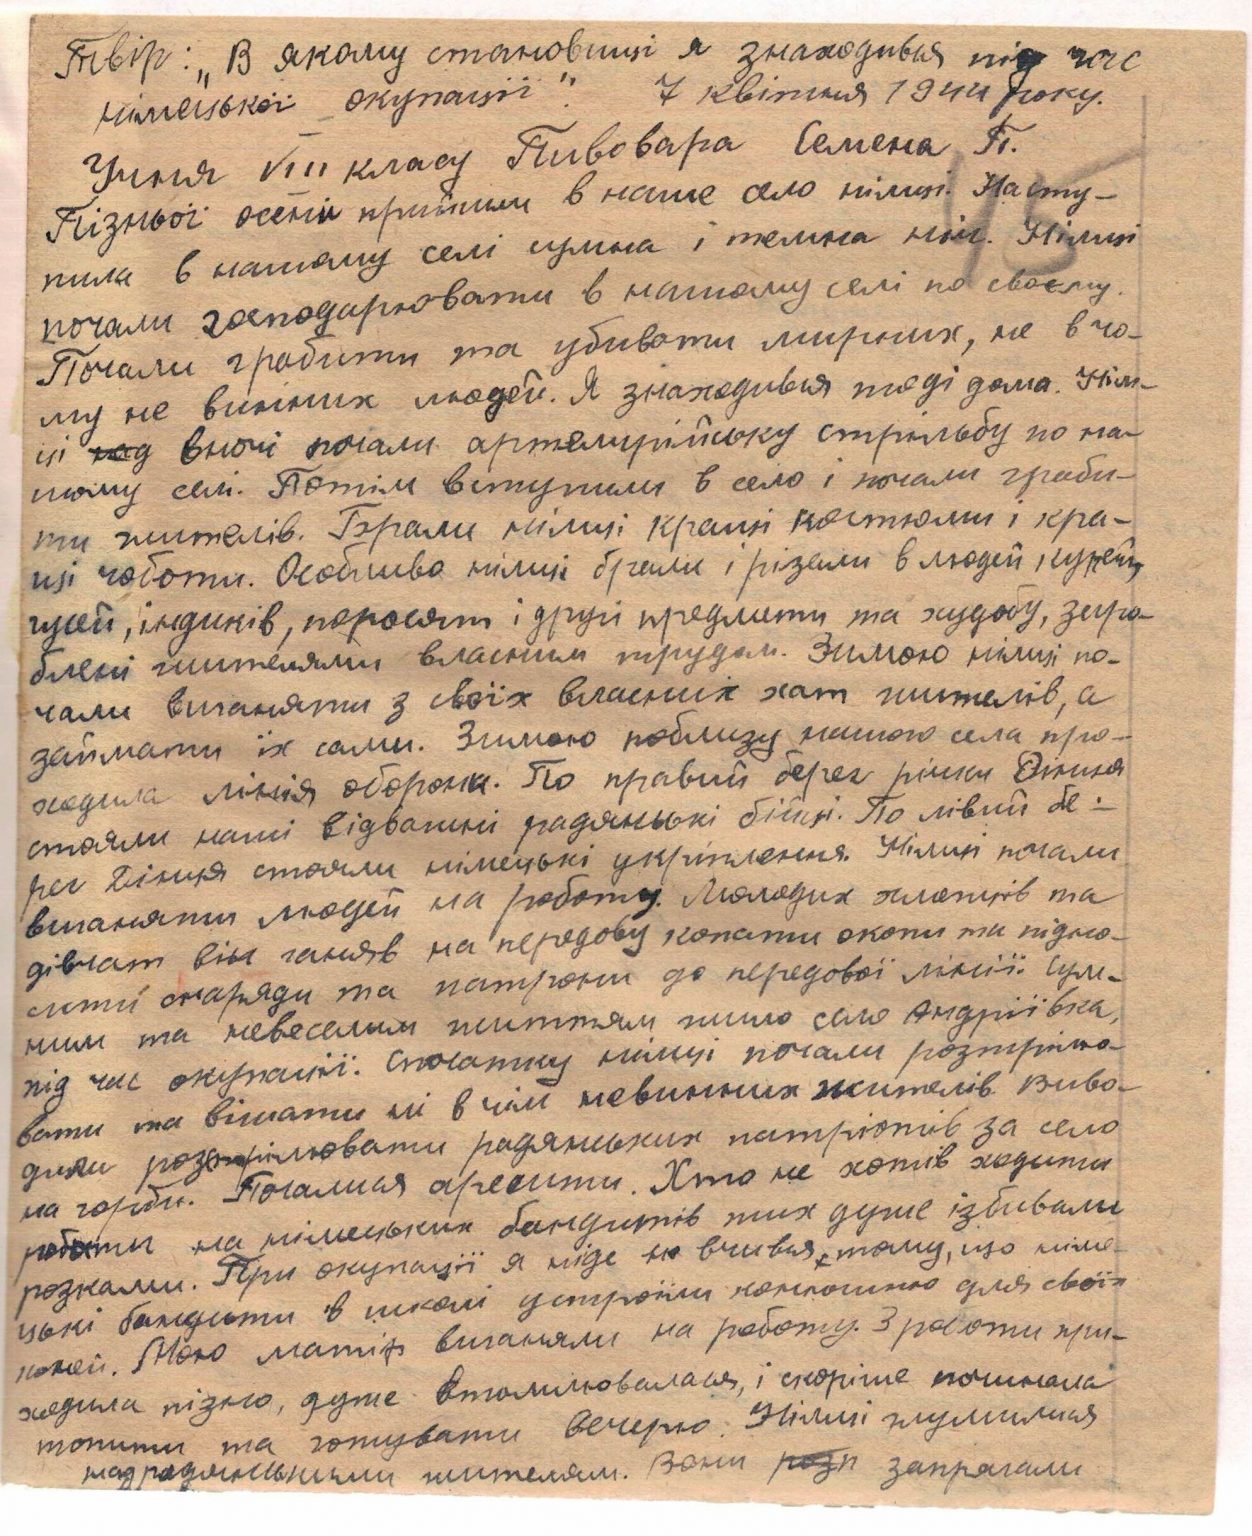 Твір: „В якому становищі я знаходився під час
німецької окупації". 7 квітня 1944 року.
Учня VIII класу Пивовара Семена П.
Пізньої осені прийшли в наше село німці. Насту-
пила в нашому селі сумна і темна ніч. Німці
почали господарювати в нашому селі по своєму.
Почали грабити та убивати мирних, не в чо-
му не винних людей. Я знаходився тоді дома. Нім-
ці вночі почали артелирійську стрільбу по на-
шому селі. Потім вступили в село і почали граби-
ти жителів. Брали німці кращі костюми і кра-
щі чоботи. Особливо німці брали і різали в людей курей,
гусей, індиків, поросят і другі предмети та худобу, зиро-
блені жителями власним трудом. Зимою німці по-
чали виганяти з своїх власних хат жителів, а
займати їх сами. Зимою поблизу нашого села про-
ходила лінія оборони. По правий берег річки Дінця
стояли наші відважні радянські бійці. По лівий бе-
рег Дінця стояли німецькі укріплення. Німці почали
виганяти людей на роботу. Молодих хлопців та
дівчат він ганяв на передову копати окопи та підно-
сити снаряди та патрони до передової лінії. Сум-
ним та невеселим життям жило село Андріївка,
під час окупації. Спочатку німці почали розтрілю-
вати та вішати ні в чім невинних жителів. Виво-
дили розстрілювати радянських патріотів за село
на горби. Почалися арешти. Хто не хотів ходити
робити на німецьких бандитів тих дуже ізбивали
розками. При окупації я ніде не вчився, тому, що німе-
цькі бандити в школі устроїли конюшню для своїх
коней. Мою матір виганяли на роботу. З роботи при-
ходила пізно, дуже втомлювалася, і скоріше починала
топити та готувати вечерю. Німці глумилися
над радянськими жителям. Вони розп запрягали